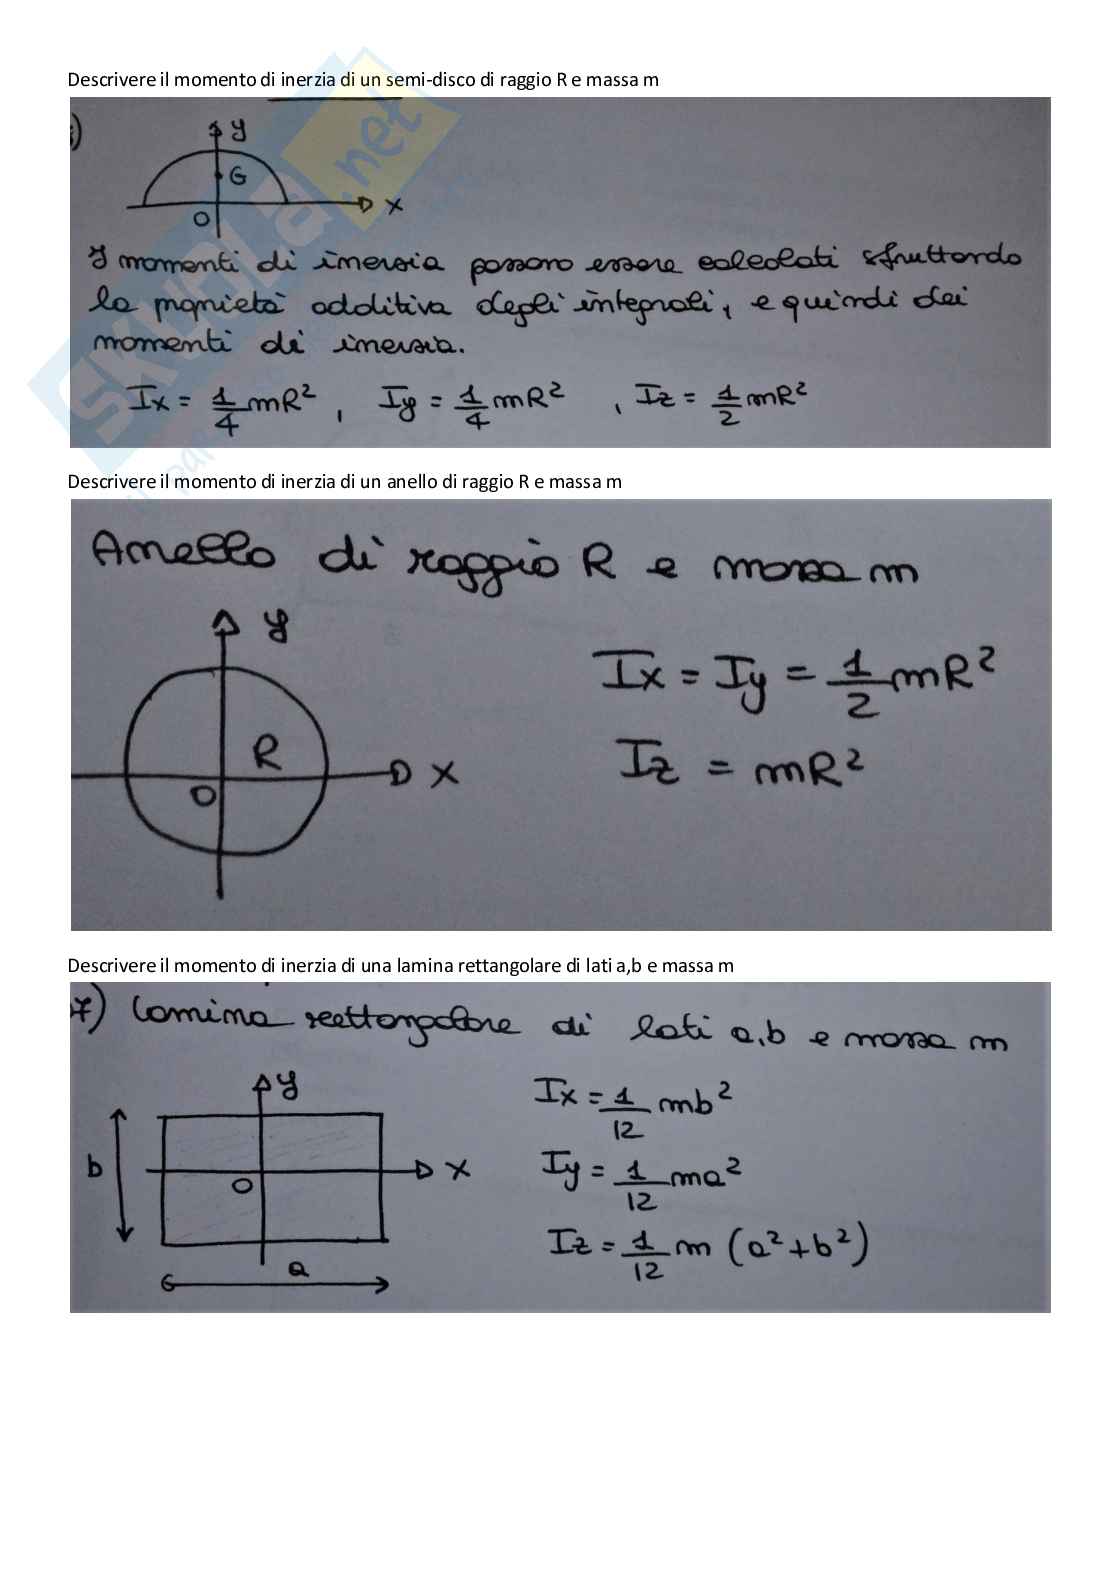 Descrivere il momento di inerzia di un semi-disco di raggio R e massa m
y
G
O
x
I momenti di inerzia possono essere calcolati sfruttando
la proprietà additiva degli integrali, e quindi dei
momenti di inerzia.
Ix = 1/4 mR², Iy = 1/4 mR², Iz = 1/2 mR²
Descrivere il momento di inerzia di un anello di raggio R e massa m
Anello di raggio R e massa m
y
R
O
x
Ix = Iy = 1/2 mR²
Iz = mR²
Descrivere il momento di inerzia di una lamina rettangolare di lati a,b e massa m
7) Lamina rettangolare di lati a,b e massa m
y
b
O
x
a
Ix = 1/12 mb²
Iy = 1/12 ma²
Iz = 1/12 m (a²+b²)
SKUOLA.net